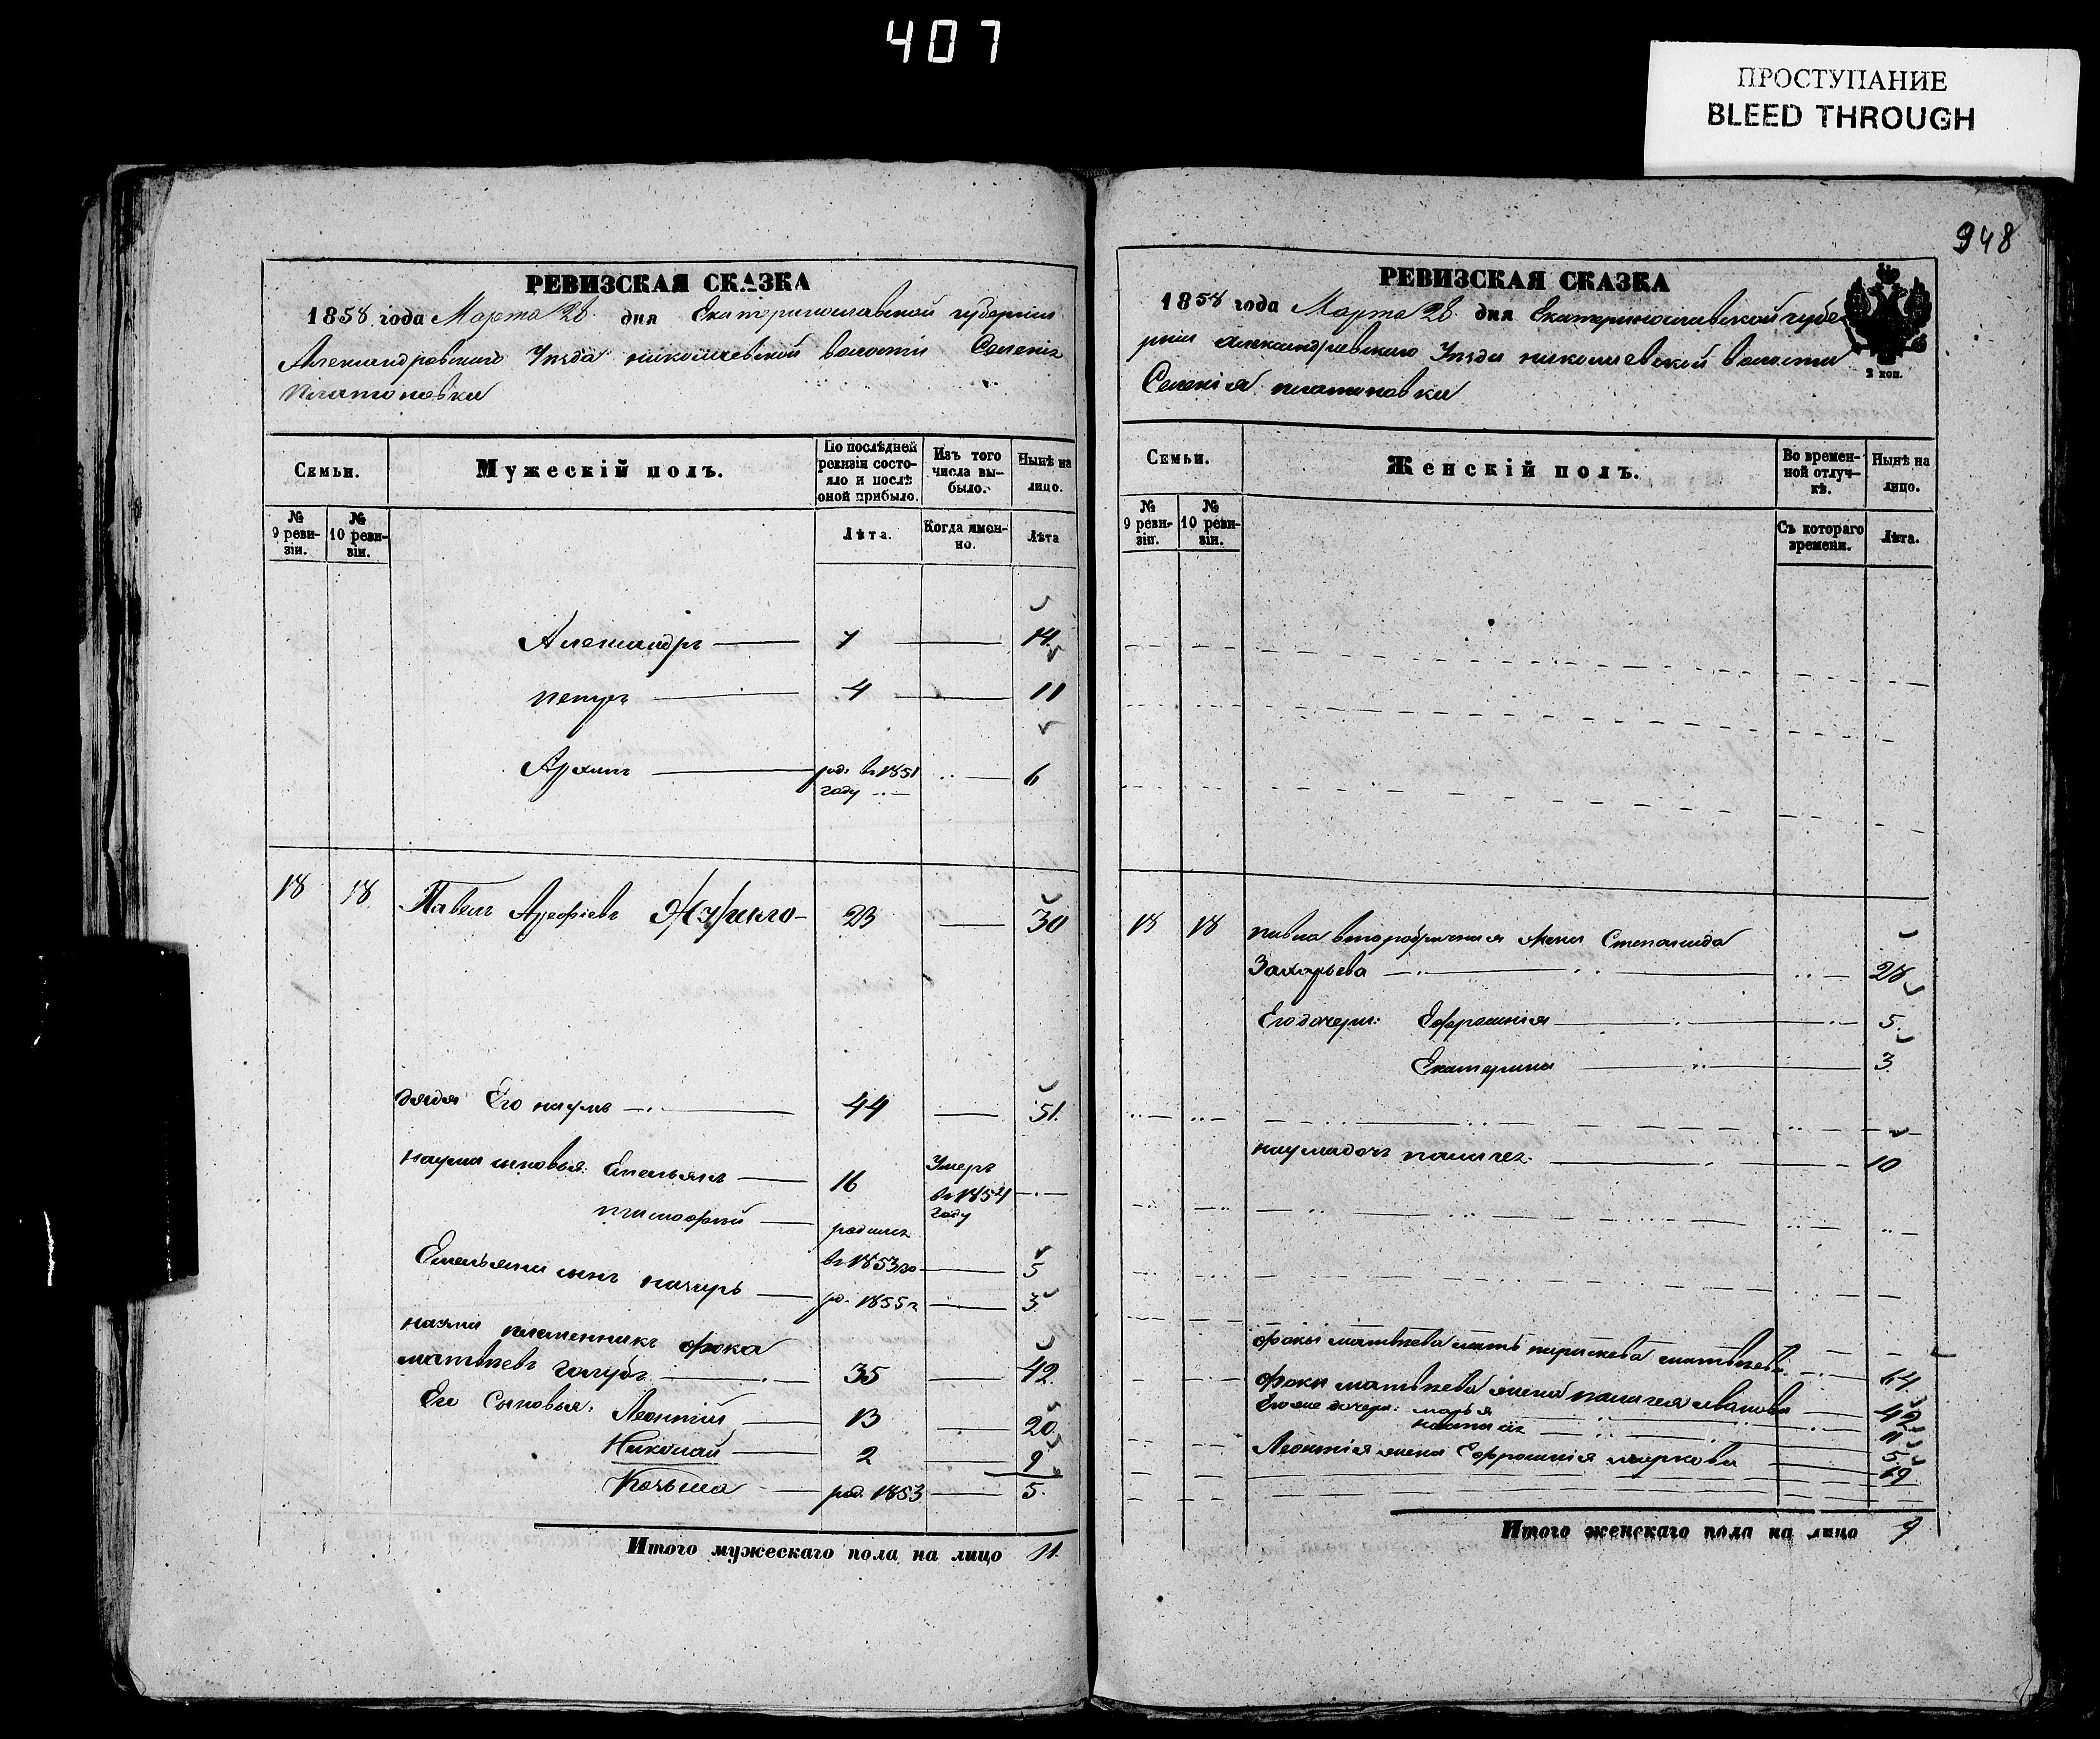 407
ПРОСТУПАНИЕ
BLEED THROUGH
948
РЕВИЗСКАЯ СКАЗКА
1858 года Марта 28 дня Екатеринославской губернии
Александровского Уѣзда николаевской волости Селенія
Платоновки
Семьи.
Мужескій полъ.
По послѣдней ревизіи состояло и послѣ оной прибыло.
Изъ того числа выбыло.
Нынѣ на лицо.
№ 9 ревизіи.
№ 10 ревизіи.
Лѣта.
Когда именно.
Лѣта
Александръ 7 14
петръ 4 11
Архипъ род. въ 1851 году 6
18 18 Павелъ Арефіевъ 23 30
дядя Его наумъ 44 51.
наума сыновья: Емельянъ 16 Умеръ въ 1854 году
тимофей родился въ 1853 5
Емельяна сынъ род. 1855 3
наума племенникъ фока
матвѣевъ голубъ 35 42
Его Сыновья: Леонтій 13 20
Николай 2 9
Козьма род. 1853 5.
Итого мужескаго пола на лицо 11.
РЕВИЗСКАЯ СКАЗКА
1858 года Марта 28 дня Екатеринославской губе
рніи Александровскаго Уѣзда николаевской волости
Селенія платоновки
2 коп.
Семьи.
Женскій полъ.
Во временной отлучкѣ.
Нынѣ на лицо.
№ 9 ревизіи.
№ 10 ревизіи.
Съ котораго времени.
Лѣта.
18 18 павла второбрачная жена Степанида
Захарьева 28
Его дочери: Ефросинія 5.
Екатерина 3
наума дочь палагея 10
фоки матвѣева мать параскева матвѣева 64
фоки матвѣева жена палагея иванова 42
Его же дочери: марья 11
5
Леонтія жена Ефросинія маркова 19
Итого женскаго пола на лицо 9